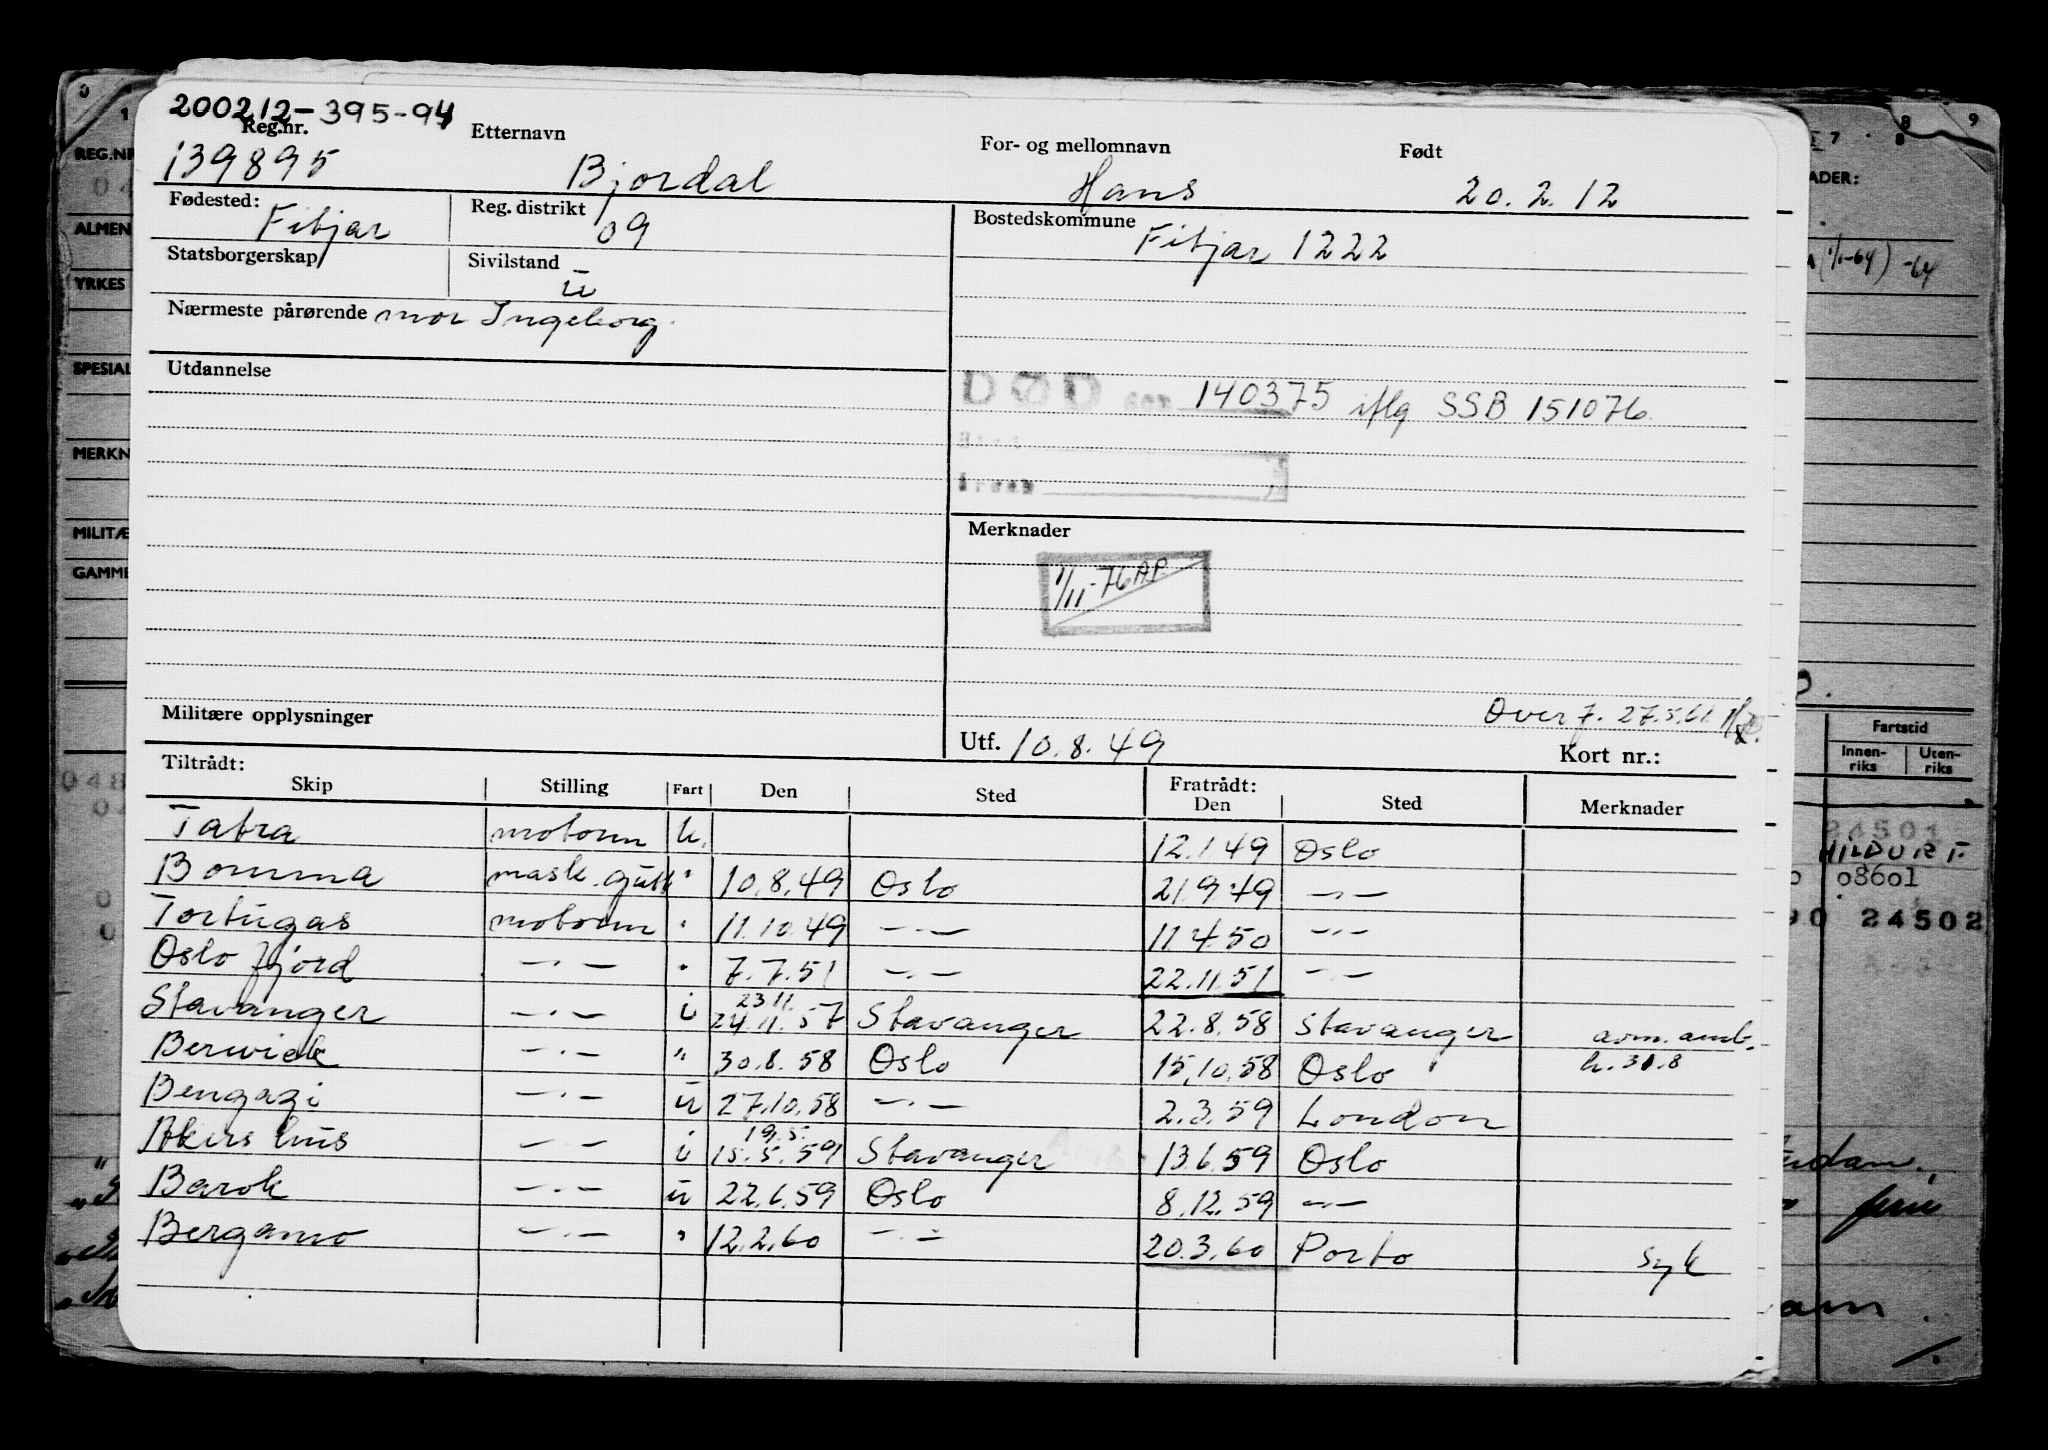 200212-395-94
Reg.nr. Etternavn For- og mellomnavn Født
139895 Bjordal Hans 20.2.12
Fødested: Fitjar Reg. distrikt 09 Bostedskommune Fitjar 1222
Statsborgerskap Sivilstand ū
Nærmeste pårørende mor Ingeborg.
Utdannelse
DØD den 140375 iflg SSB 151076.
Sted
Årsak
Merknader
1/11-76 AP.
Militære opplysninger
Overf. 27.5.61
Utf. 10.8.49 Kort nr.:
Tiltrådt: Fratrådt:
Skip Stilling Fart Den Sted Den Sted Merknader
Tatra motorm u. 12.1.49 Oslo
Bomma mask.gutt " 10.8.49 Oslo 21.9.49 —"—
Tortugas motorm " 11.10.49 —"— 11.4.50 —"—
Oslofjord —"— " 7.7.51 —"— 22.11.51 —"—
23.11.
Stavanger —"— i 24.11.57 Stavanger 22.8.58 Stavanger avm. amb.
Berwick —"— " 30.8.58 Oslo 15.10.58 Oslo h. 31.8
Bengazi —"— ū 27.10.58 —"— 2.3.59 London
19.5.
Akershus —"— i 15.5.59 Stavanger 13.6.59 Oslo
Barok —"— ū 22.6.59 Oslo 8.12.59 —"—
Bergamo —"— " 12.2.60 —"— 20.3.60 Porto syk
0
1
REG.NR
04
ALMEN
YRKES
SPESIAL
MERKN
MILITÆ
GAMME
048
7 8 8 9
ADER:
(1/1-64) -64
Fartstid
Innenriks Utenriks
24501
HILDUR F.
08601
90 24502